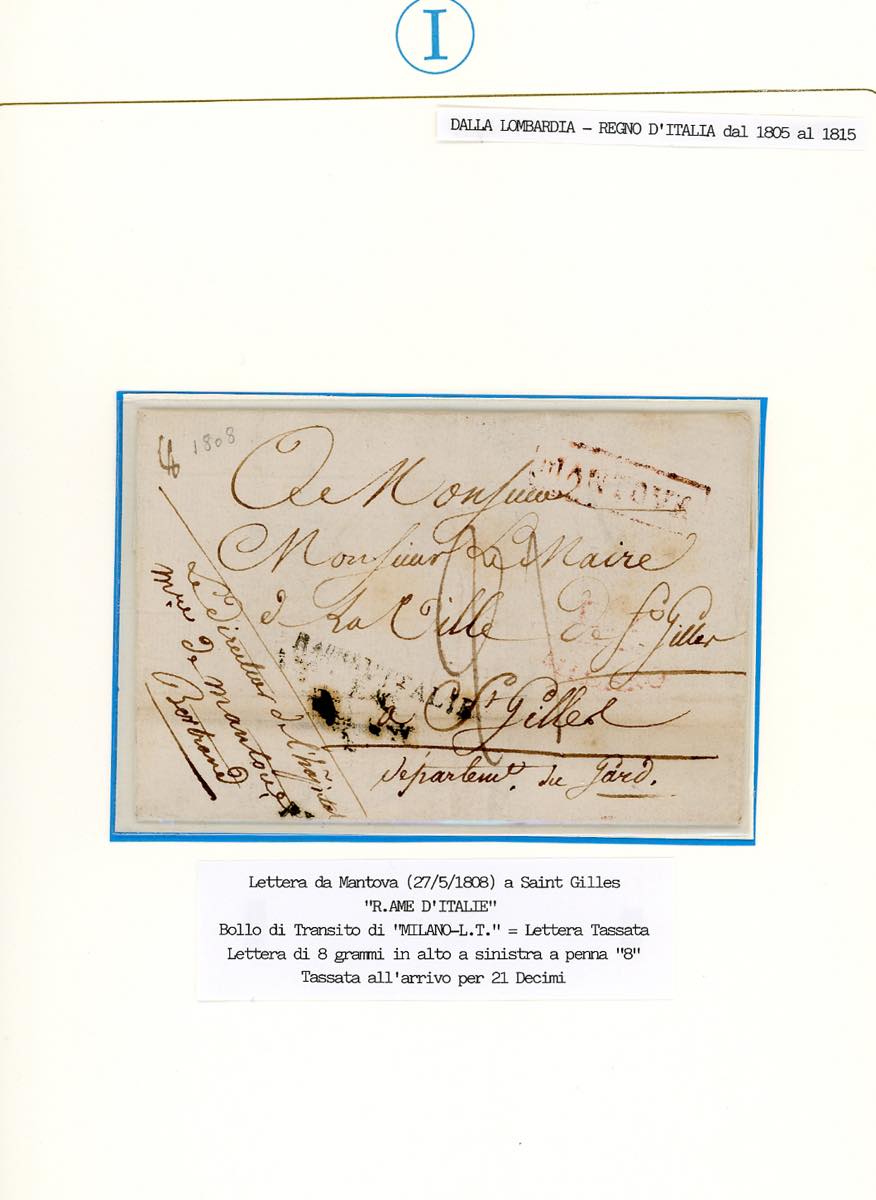 I
DALLA LOMBARDIA - REGNO D'ITALIA dal 1805 al 1815
1808
8
A Monsieur
MANTOVA
Monsieur Le Maire
de La Ville De St Gilles
21
L.T.
MILANO
R.AME D'ITALIE
a St Gilles
département. du Gard.
Le Directeur de l'hôpital
mre de Mantoue
Bertrand
Lettera da Mantova (27/5/1808) a Saint Gilles
"R.AME D'ITALIE"
Bollo di Transito di "MILANO-L.T." = Lettera Tassata
Lettera di 8 grammi in alto a sinistra a penna "8"
Tassata all'arrivo per 21 Decimi